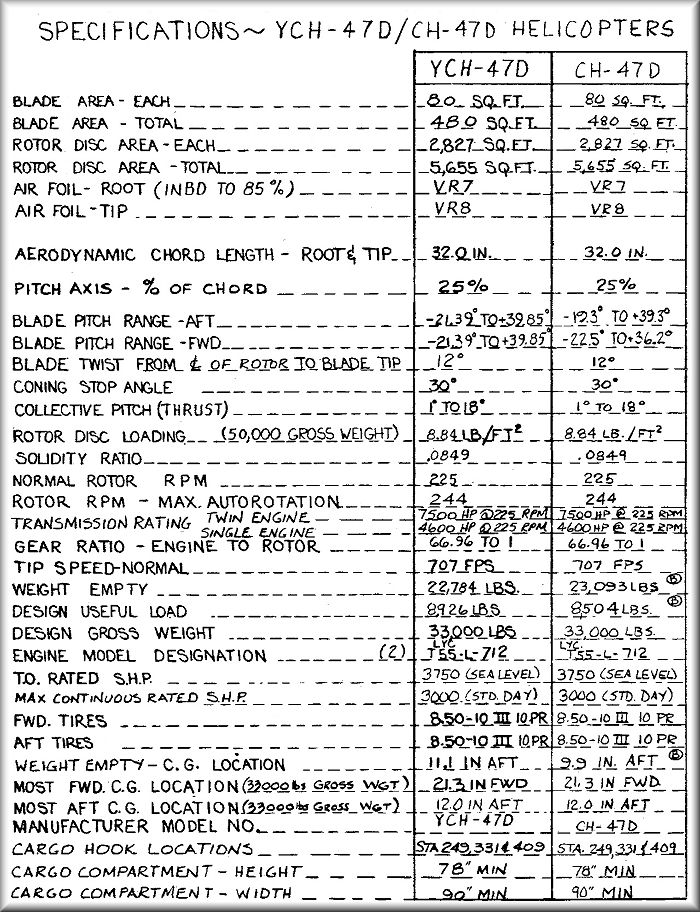 SPECIFICATIONS~ YCH-47D/CH-47D HELICOPTERS
YCH-47D CH-47D
BLADE AREA - EACH 80 SQ.FT. 80 SQ. FT.
BLADE AREA - TOTAL 480 SQ.FT. 480 SQ.FT.
ROTOR DISC AREA - EACH 2,827 SQ.FT. 2,827 SQ.FT.
ROTOR DISC AREA - TOTAL 5,655 SQ.FT. 5,655 SQ. FT.
AIR FOIL - ROOT (INBD TO 85%) VR7 VR7
AIR FOIL - TIP VR8 VR8
AERODYNAMIC CHORD LENGTH - ROOT & TIP 32.0 IN. 32.0 IN.
PITCH AXIS - % OF CHORD 25% 25%
BLADE PITCH RANGE - AFT -21.39° TO +39.85° -19.3° TO +39.3°
BLADE PITCH RANGE - FWD -21.39° TO +39.85° -22.5° TO +36.2°
BLADE TWIST FROM ℄ OF ROTOR TO BLADE TIP 12° 12°
CONING STOP ANGLE 30° 30°
COLLECTIVE PITCH (THRUST) 1° TO 18° 1° TO 18°
ROTOR DISC LOADING (50,000 GROSS WEIGHT) 8.84 LB/FT² 8.84 LB./FT²
SOLIDITY RATIO .0849 .0849
NORMAL ROTOR RPM 225 225
ROTOR RPM - MAX. AUTOROTATION 244 244
TRANSMISSION RATING TWIN ENGINE 7500 HP @ 225 RPM 7500 HP @ 225 RPM
SINGLE ENGINE 4600 HP @ 225 RPM 4600 HP @ 225 RPM
GEAR RATIO - ENGINE TO ROTOR 66.96 TO 1 66.96 TO 1
TIP SPEED - NORMAL 707 FPS 707 FPS
WEIGHT EMPTY 22,784 LBS. 23,093 LBS Ⓑ
DESIGN USEFUL LOAD 8926 LBS 8,504 LBS. Ⓑ
DESIGN GROSS WEIGHT 33,000 LBS 33,000 LBS.
ENGINE MODEL DESIGNATION (2) LYC T55-L-712 LYC T55-L-712
T.O. RATED S.H.P. 3750 (SEA LEVEL) 3750 (SEA LEVEL)
MAX CONTINUOUS RATED S.H.P. 3000 (STD. DAY) 3000 (STD. DAY)
FWD. TIRES 8.50-10 III 10PR 8.50-10 III 10 PR
AFT TIRES 8.50-10 III 10PR 8.50-10 III 10 PR
WEIGHT EMPTY - C.G. LOCATION 11.1 IN AFT 9.9 IN. AFT Ⓑ
MOST FWD. C.G. LOCATION (33000 lbs GROSS WGT) 21.3 IN FWD 21.3 IN FWD.
MOST AFT C.G. LOCATION (33000 lbs GROSS WGT) 12.0 IN AFT 12.0 IN AFT
MANUFACTURER MODEL NO. YCH-47D CH-47D
CARGO HOOK LOCATIONS STA 249,331 & 409 STA. 249,331 & 409
CARGO COMPARTMENT - HEIGHT 78" MIN 78" MIN
CARGO COMPARTMENT - WIDTH 90" MIN 90" MIN